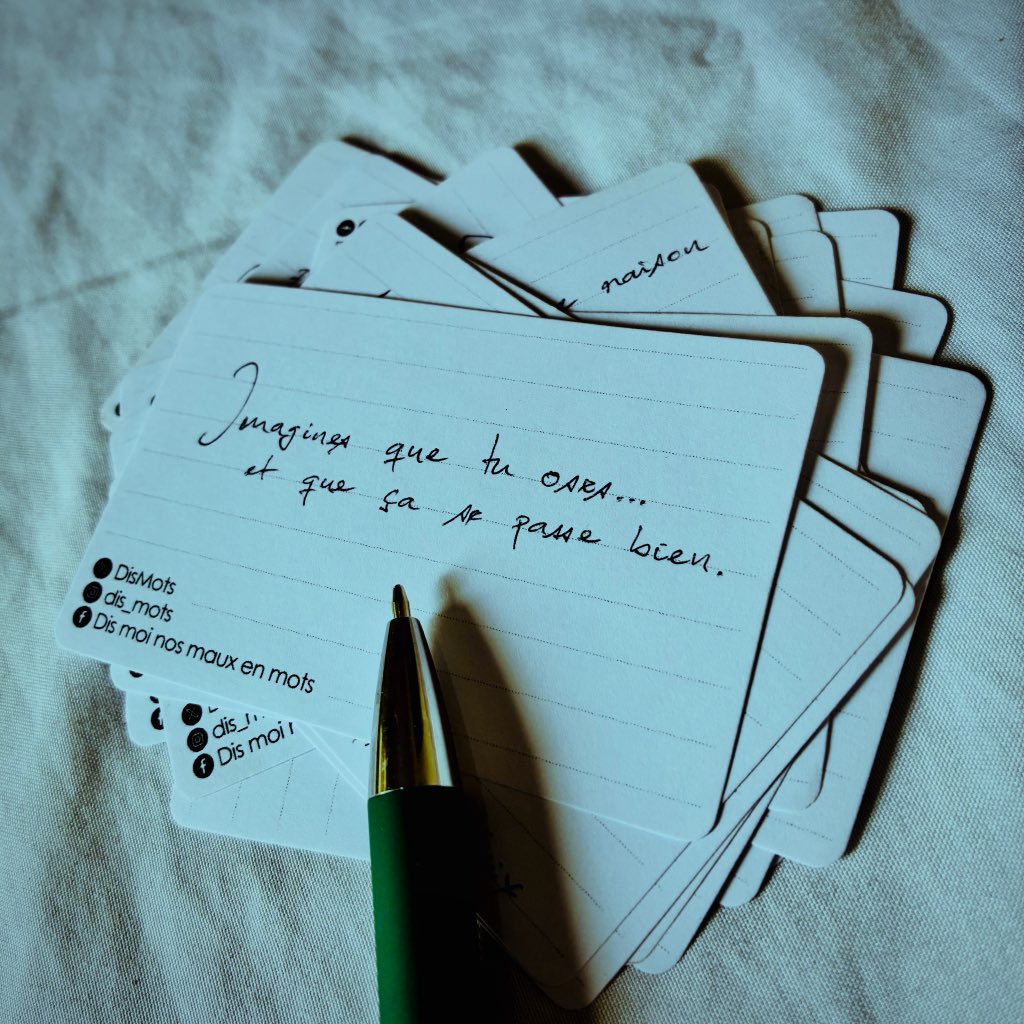 Imagines que tu oses...
et que ça se passe bien.
DisMots
dis_mots
Dis moi nos maux en mots
Dis moi